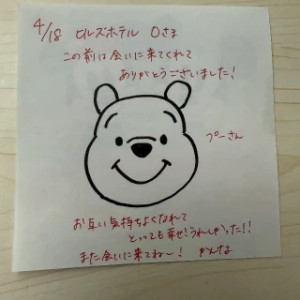 4/18 ヒルズホテル Oさま
この前は会いに来てくれて
ありがとうございました！
プーさん
お互い気持ちよくなれて
とっても幸せ！うれしかった！！
また会いに来てねー！ かんな